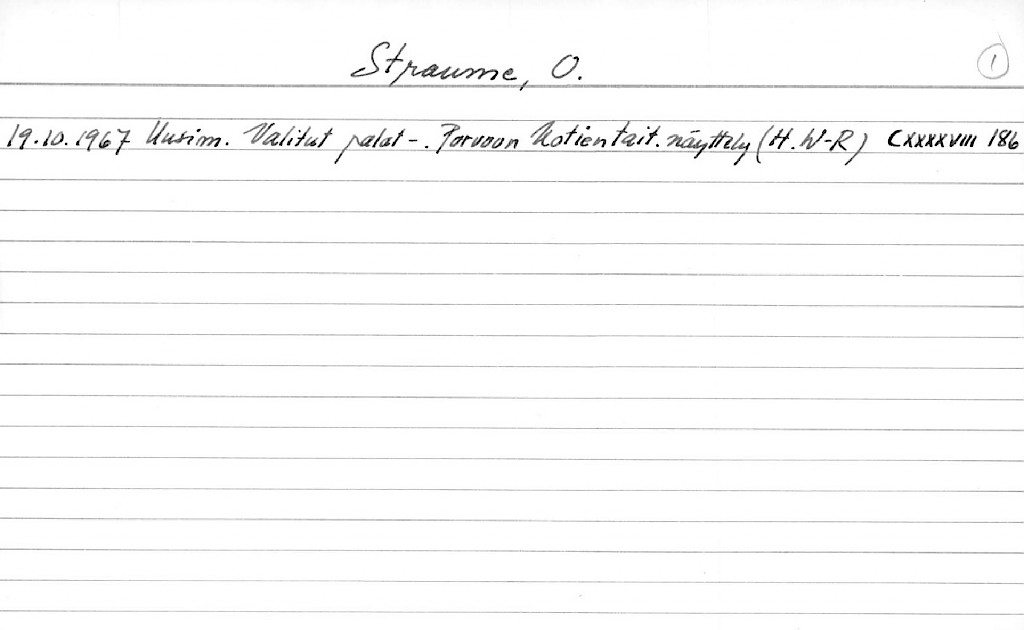 Straume, O.
1
19.10.1967 Uusim. Valitut palat -. Porvoon Kotientait. näyttely (H. W-R) CXXXXVIII 186